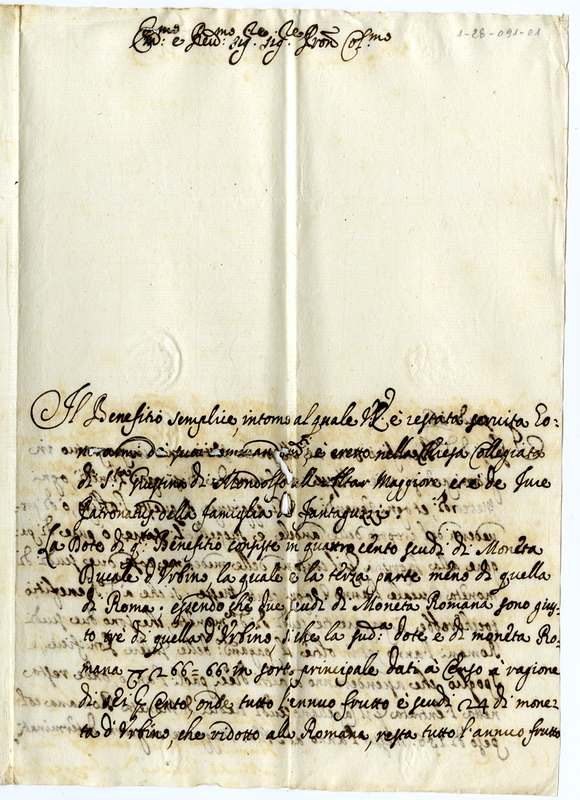 Em.mo e Reud.mo Sig.re Sig.re Pron Col.mo
1-28-091-01
Il Benefitio semplice, intorno al quale V.E. è restata seruita Ho-
norarmi de suoi comman, è eretto nella Chiesa Collegiata
di S.ta Giustina di Mondolfo all'Altar Maggiore et è de Jure
Patronatus della famiglia
La Dote di q.o Benefitio consiste in quattro cento scudi di Moneta
Ducale d'Vrbino, la quale è la terza parte meno di quella
di Roma; essendo che due scudi di Moneta Romana sono gius-
to tre di quella d'Vrbino, si che la sud.a dote è di moneta Ro-
mana 266=66 in sorte principale dati à Censo à ragione
di sei p Cento, onde tutto l'annuo frutto è scudi 24 di mone-
ta d'Vrbino, che ridotto alla Romana, resta tutto l'annuo frutto